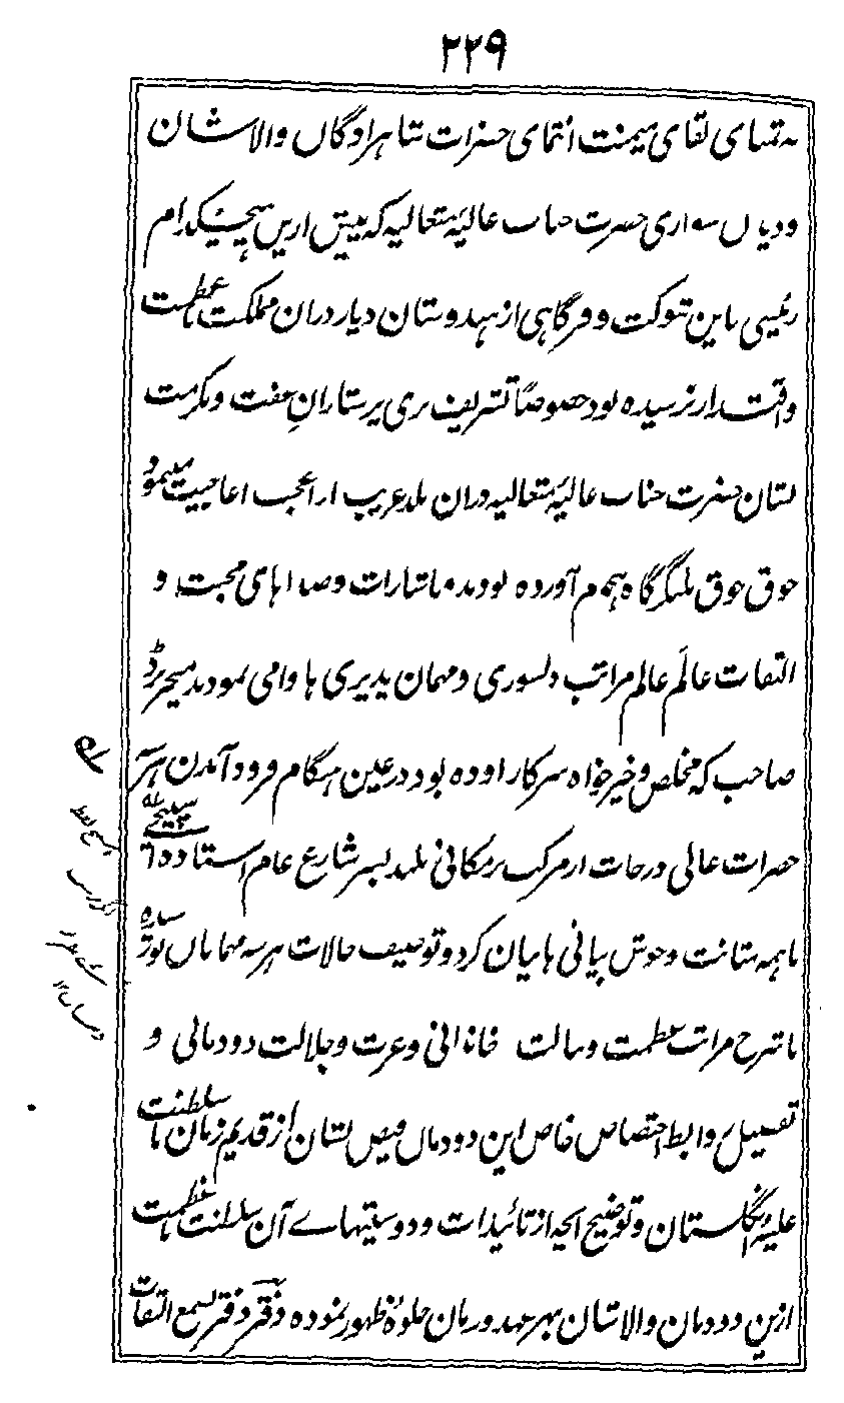 ۲۲۹
به تمنای لقای میمنت انتمای حضرات شاهزادگان والاشان
و دیدن سواری حضرت جناب عالیهٔ متعالیه که پیش ازین هیچیکدام
رئیسی باین شوکت و فر گاهی از هندوستان دیار دران مملکت باعظمت
واقتدار نرسیده بود خصوصاً تشریف بری پرستارانِ عفت و مکرمت
نشان حضرت جناب عالیهٔ متعالیه دران بلد غریب از اعجب اعاجیب مینمود
جوق جوق بلنگرگاه بهم آورده بودند باشارات وصداهای محبت و
التفات عالَم عالم مراتب دلسوزی و مهمان پذیری ها وامی نمودند میجر برڈ
صاحب که مخلص وخیر خواه سرکار اوده بود در عین هنگام فرود آمدن هر سه
حضرات عالی درجات از مرکب بر مکانی بلند بسر شارع عام استاده
باهمه متانت وخوش بیانی ها بیان کرد و توصیف حالات هر سه مهمانان
با شرح مراتب عظمت و بسالت خاندانی وعزت وجلالت دودمانی و
تفصیل روابط اختصاص خاص این دودمان فیض نشان از قدیم زمان با سلطنت
علیهٔ انگلستان و توضیح انچه از تائیدات و دوستیهاے آن سلطنت باعظمت
ازین دودمان والاشان بهر عهد و زمان جلوهٔ ظهور نموده دفتر دفتر بسمع التفات